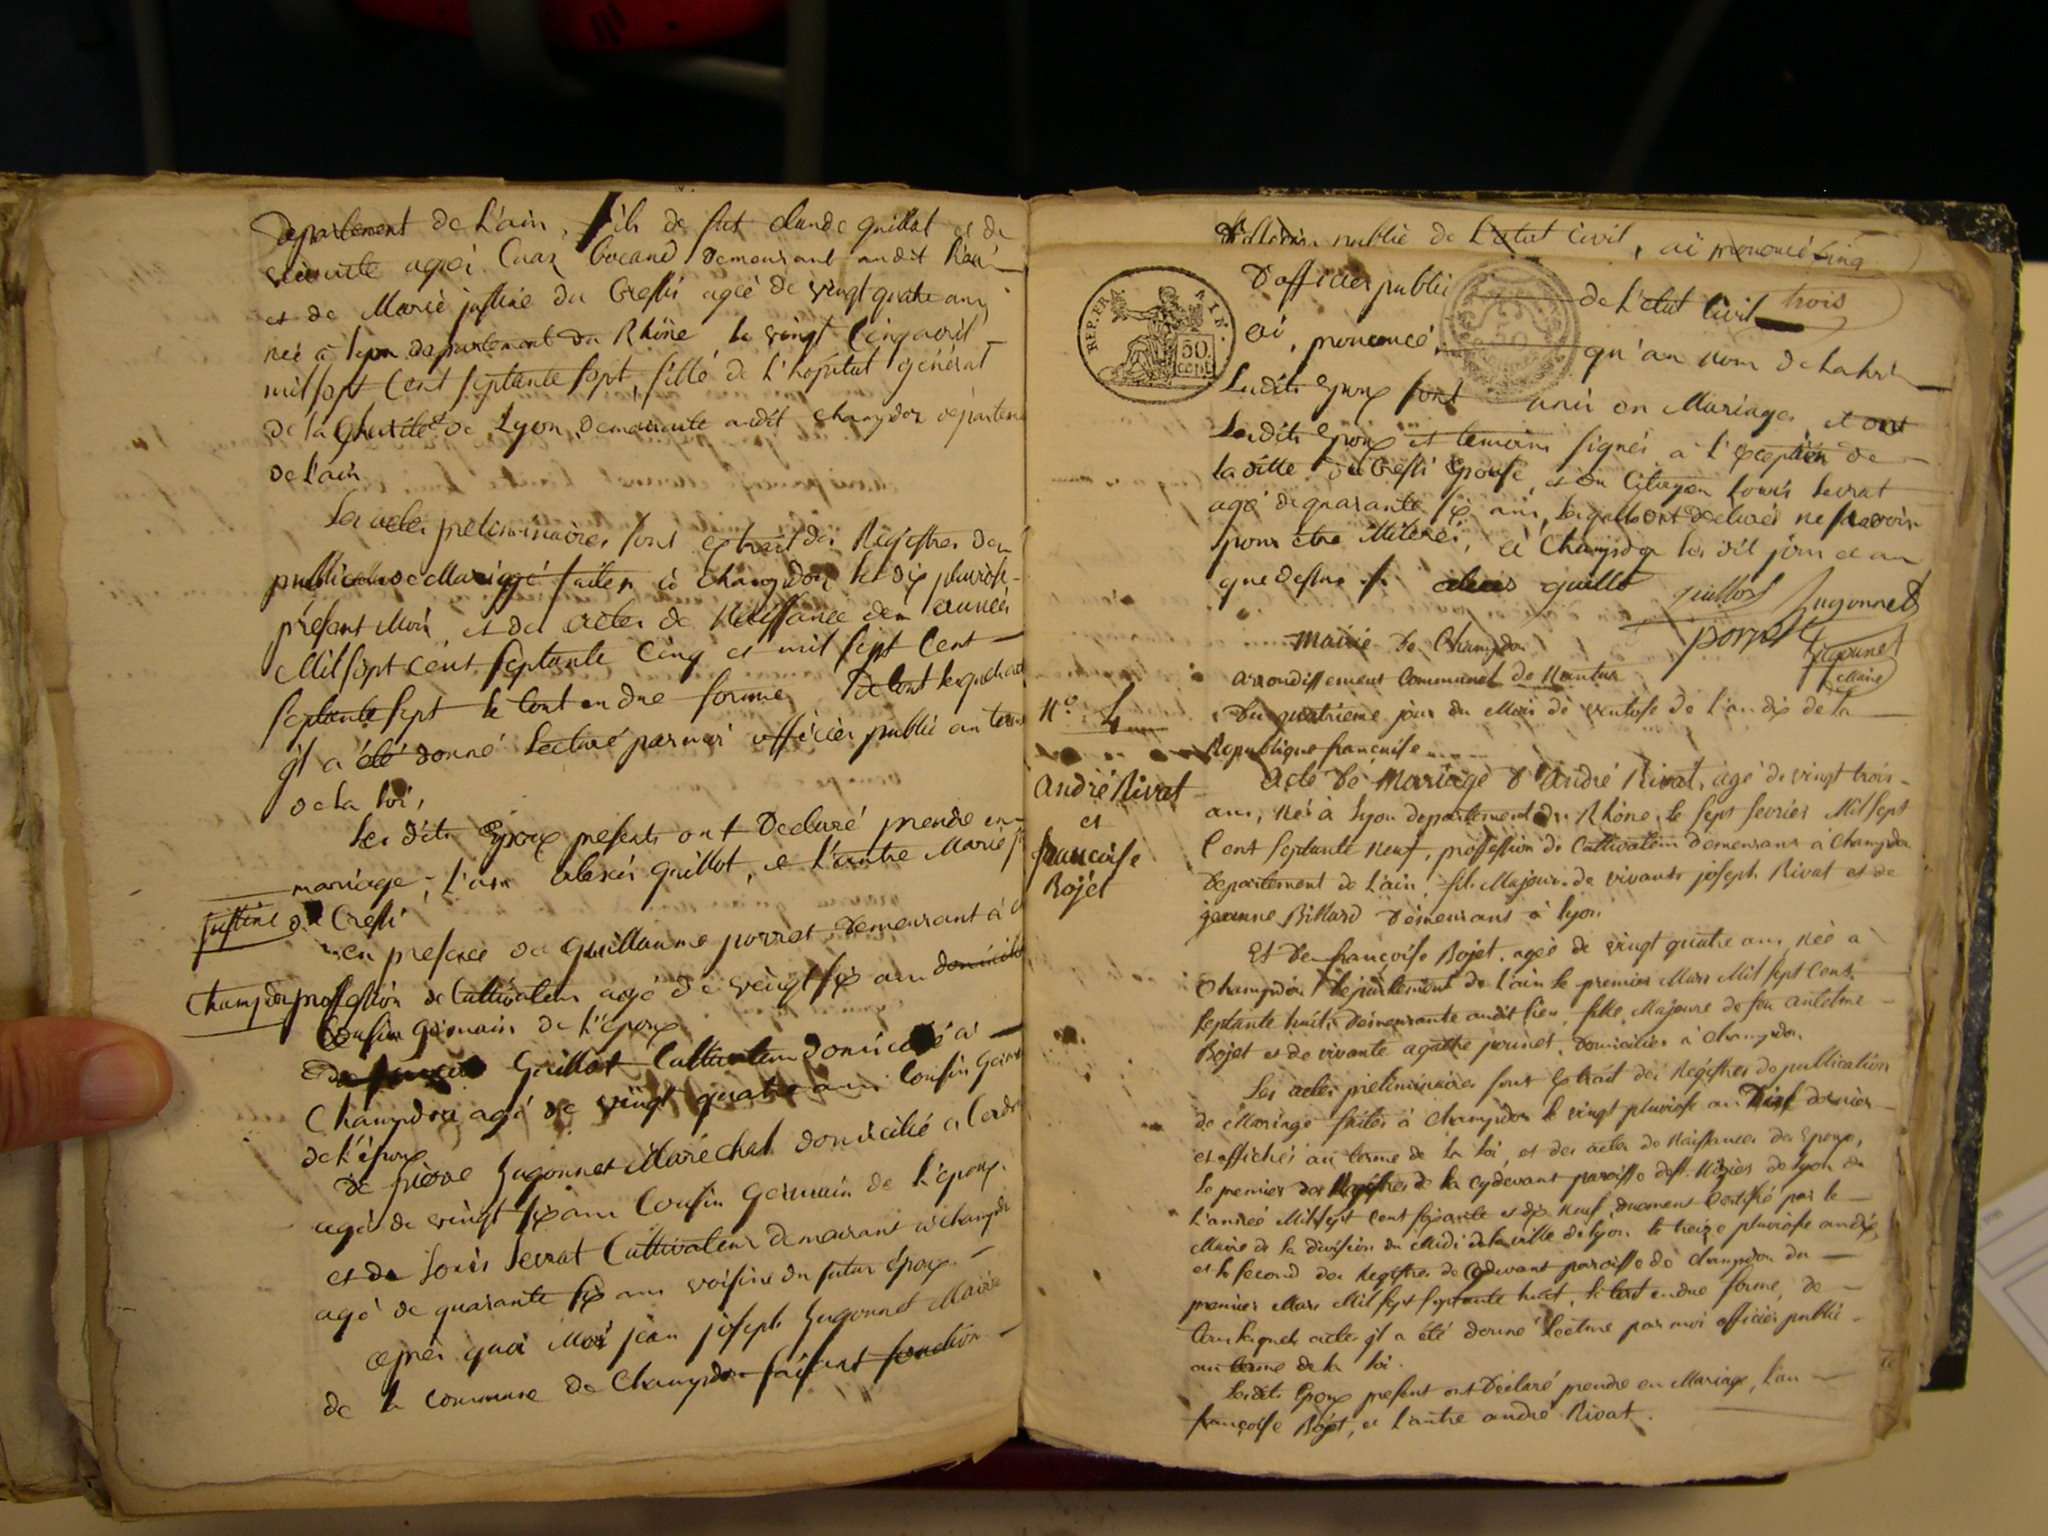 departement de L'ain, fils de feu claude guillot et de
vivante agée Cuaz bocand demeurant audit lieu
et de Marie justine du Cressi agée de vingt quatre ans
née à lyon departement du Rhône le vingt cinq avril
mil sept Cent septante sept, fille de L'hôpital général
de la Charité de Lyon, demeurante audit champdor departem
de L'ain
Les actes preliminaires sont extrait des Régistres de
publications de Mariage faites à champdor le dix pluviose
présent Mois, et des actes de Naissance des années
Mil sept cent septante Cinq et mil sept Cent
septante sept le tout en due forme De tout lesquels actes
il a été donné Lecture par moi officier public au terme
de la loi,
Les dits Epoux présents ont Declaré prendre en
mariage, l'un alexis guillot, et L'autre Marie
justine du Cressi
en presence de guillaume porret demeurant à
Champdor proffession de Cultivateur agé de vingt six ans
Cousin Germain de L'époux
Guillot Cultivateur domicilié à
Champdor agé de vingt quatre ans Cousin Germ
de L'époux
de pierre hugonnet Maréchal domicilié à Corlier
agé de vingt six ans Cousin Germain de L'époux
et de Louis Serrat Cultivateur demeurant à champdor
agé de quarante six ans voisins du futur époux
après quoi Moi jean joseph hugonnet Maire
de la commune de Champdor faisant fonction
public de L'etat Civil, ai prononcé Cinq
D'officier public de L'etat Civil trois
REP. FRA. AIN.
50 cent
ai, prononcé, qu'au nom de la loi
Lesdits Epoux sont unis en Mariage, et ont
Lesdits Epoux et temoins signés à l'exception de
la ditte du Cressi Epouse, et du Citoyen Louis Serrat
agé de quarante six ans, lesquels ont declarés ne savoir
pour être illiterés, à Champdor les dit jour et an
que dessus alexis guillot guillot hugonnet
porret hugonnet
Maire
Mairie de Champdor
arrondissement Communal de Nantua
N.º 4 Du quatrieme jour du Mois de ventose de L'an dix de la
Republique françaisse
André Rivat
et
francoise
Bojet
Acte De Mariage D'André Rivat, agé de vingt trois
ans, Né à Lyon departement du Rhône le sept fevrier Mil sept
Cent septante Neuf, profession de Cultivateur demeurans à champdor
Departement de L'ain, fils Majeur de vivants joseph Rivat et de
jeanne Billard demeurans à Lyon
Et De françoise Bojet, agée de vingt quatre ans, Née à
Champdor departement de L'ain le premier Mars Mil sept Cent
septante huit, demeurante audit lieu, fille Majeure de feu antelme
Bojet et de vivante agathe jounet, domiciliée à Champdor.
Les actes preliminaires sont Extrait des Régistres de publication
de Mariage faites à Champdor le vingt pluviose an Dix dernier
et affichés au terme de la loi, et des actes de Naissances des Epoux,
le premier des Régistres de la cydevant paroisse de St. Nizier de Lyon de
L'année Mil sept cent soixante et dix Neuf, duement Certifié par le
Maire de la division du Midi de la ville de Lyon le treize pluviose an dix,
et le second des Régistres de Cydevant paroisse de Champdor du
premier Mars Mil sept septante huit, le tout en due forme, de
tous lesquels actes il a été donné Lecture par moi officier public
au terme de la loi.
Lesdits Epoux present ont Déclaré prendre en Mariage, l'un
françoise Bojet, et L'autre andré Rivat.